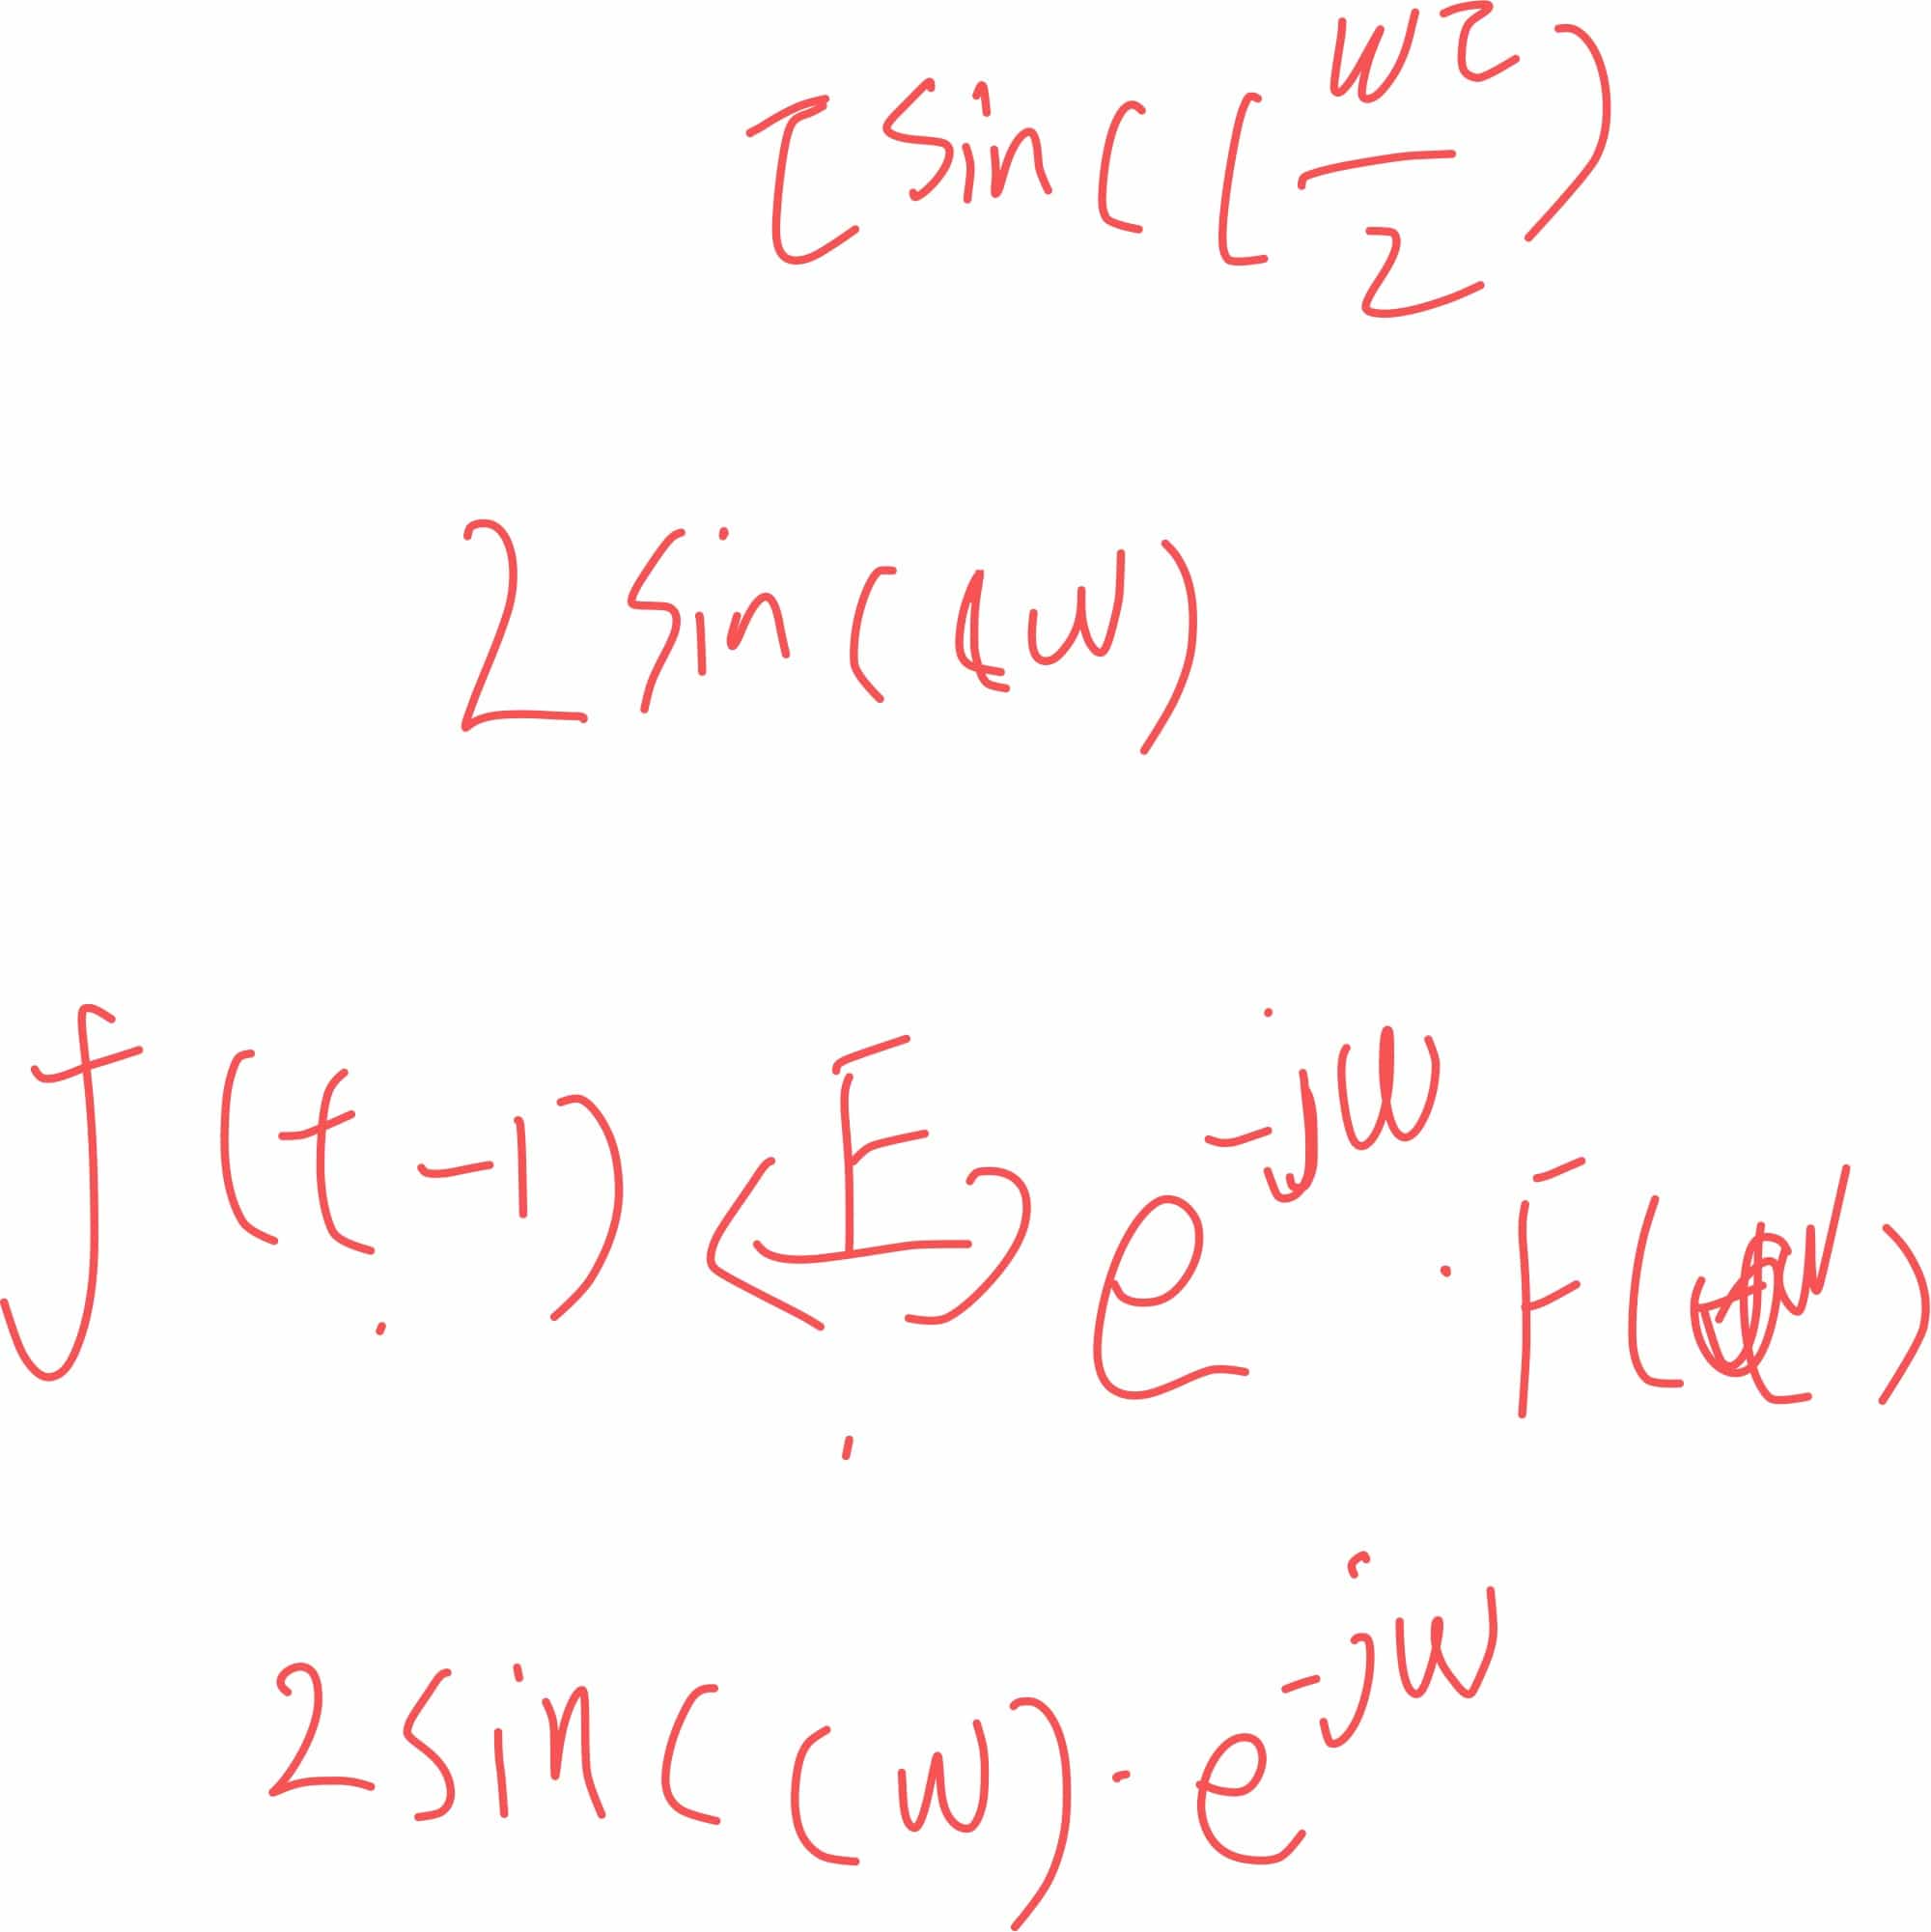 τ sinc(ωτ/2)
2 sinc(ω)
f(t-1) <F> e^{-jω} · F(ω)
2 sinc(ω) · e^{-jω}